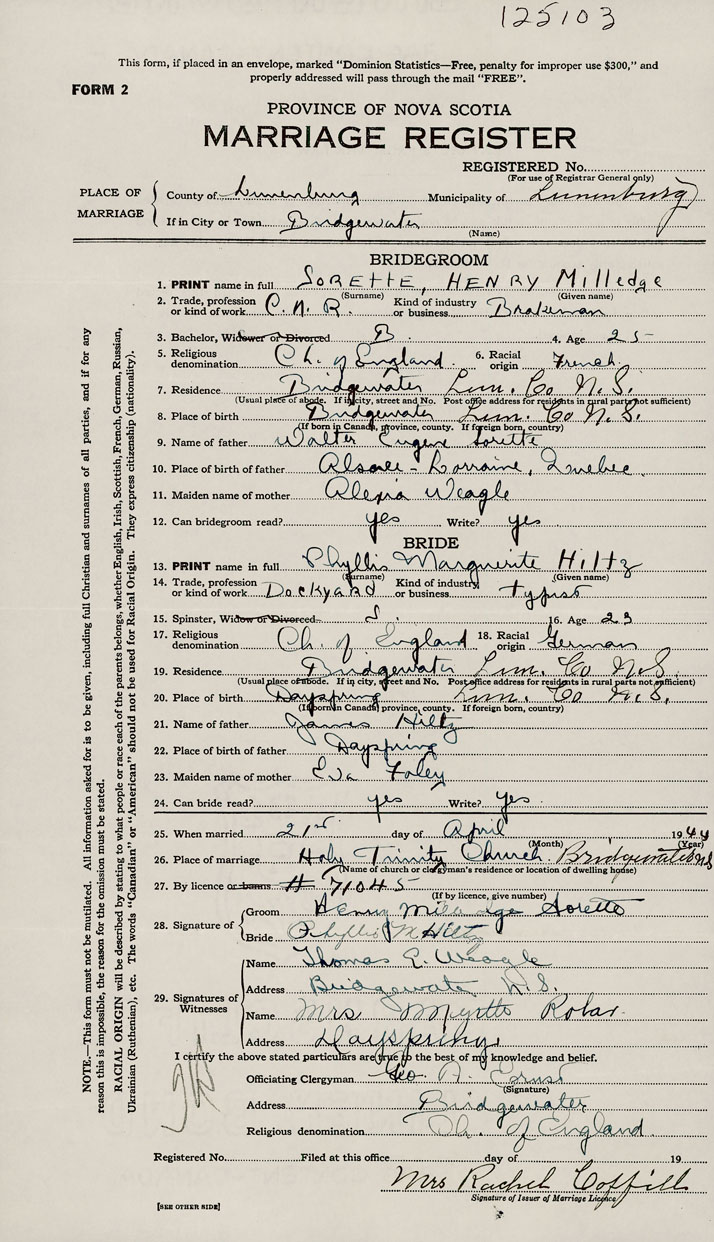 125103
This form, if placed in an envelope, marked "Dominion Statistics—Free, penalty for improper use $300," and
properly addressed will pass through the mail "FREE".
FORM 2
PROVINCE OF NOVA SCOTIA
MARRIAGE REGISTER
REGISTERED No.
(For use of Registrar General only)
PLACE OF MARRIAGE
County of Lunenburg Municipality of Lunenburg
If in City or Town Bridgewater
(Name)
BRIDEGROOM
1. PRINT name in full SORETTE, HENRY Milledge
(Surname) (Given name)
2. Trade, profession or kind of work C.N.R. Kind of industry or business Brakeman
3. Bachelor, Widower or Divorced B. 4. Age 25
5. Religious denomination Ch. of England 6. Racial origin French
7. Residence Bridgewater Lun. Co N.S.
(Usual place of abode. If in city, street and No. Post office address for residents in rural parts not sufficient)
8. Place of birth Bridgewater Lun. Co N.S.
(If born in Canada, province, county. If foreign born, country)
9. Name of father Walter Eugene Sorette
10. Place of birth of father Alsace-Lorraine, Quebec
11. Maiden name of mother Alexia Weagle
12. Can bridegroom read? yes Write? yes
BRIDE
13. PRINT name in full Phyllis Marguerite Hiltz
(Surname) (Given name)
14. Trade, profession or kind of work Dockyard Kind of industry or business typist
15. Spinster, Widow or Divorced S. 16. Age 23
17. Religious denomination Ch. of England 18. Racial origin German
19. Residence Bridgewater Lun. Co N.S.
(Usual place of abode. If in city, street and No. Post office address for residents in rural parts not sufficient)
20. Place of birth Dayspring Lun. Co N.S.
(If born in Canada province, county. If foreign born, country)
21. Name of father James Hiltz
22. Place of birth of father Dayspring
23. Maiden name of mother Eva Foley
24. Can bride read? yes Write? yes
25. When married 21st day of April 1944
(Month) (Year)
26. Place of marriage Holy Trinity Church Bridgewater N.S.
(Name of church or clergyman's residence or location of dwelling house)
27. By licence or banns # 71045
(If by licence, give number)
28. Signature of
Groom Henry Milledge Sorette
Bride Phyllis M Hiltz
29. Signatures of Witnesses
Name Thomas E. Weagle
Address Bridgewater N.S.
Name Mrs Myrtle Robar
Address Dayspring
I certify the above stated particulars are true to the best of my knowledge and belief.
Officiating Clergyman Geo. A. Ernst
(Signature)
Address Bridgewater
Religious denomination Ch. of England
Registered No. Filed at this office day of 19
Mrs Rachel Coffill
Signature of Issuer of Marriage Licence
[SEE OTHER SIDE]
NOTE.—This form must not be mutilated. All information asked for is to be given, including full Christian and surnames of all parties, and if for any
reason this is impossible, the reason for the omission must be stated.
RACIAL ORIGIN will be described by stating to what people or race each of the parents belongs, whether English, Irish, Scottish, French, German, Russian,
Ukrainian (Ruthenian), etc. The words "Canadian" or "American" should not be used for Racial Origin. They express citizenship (nationality).